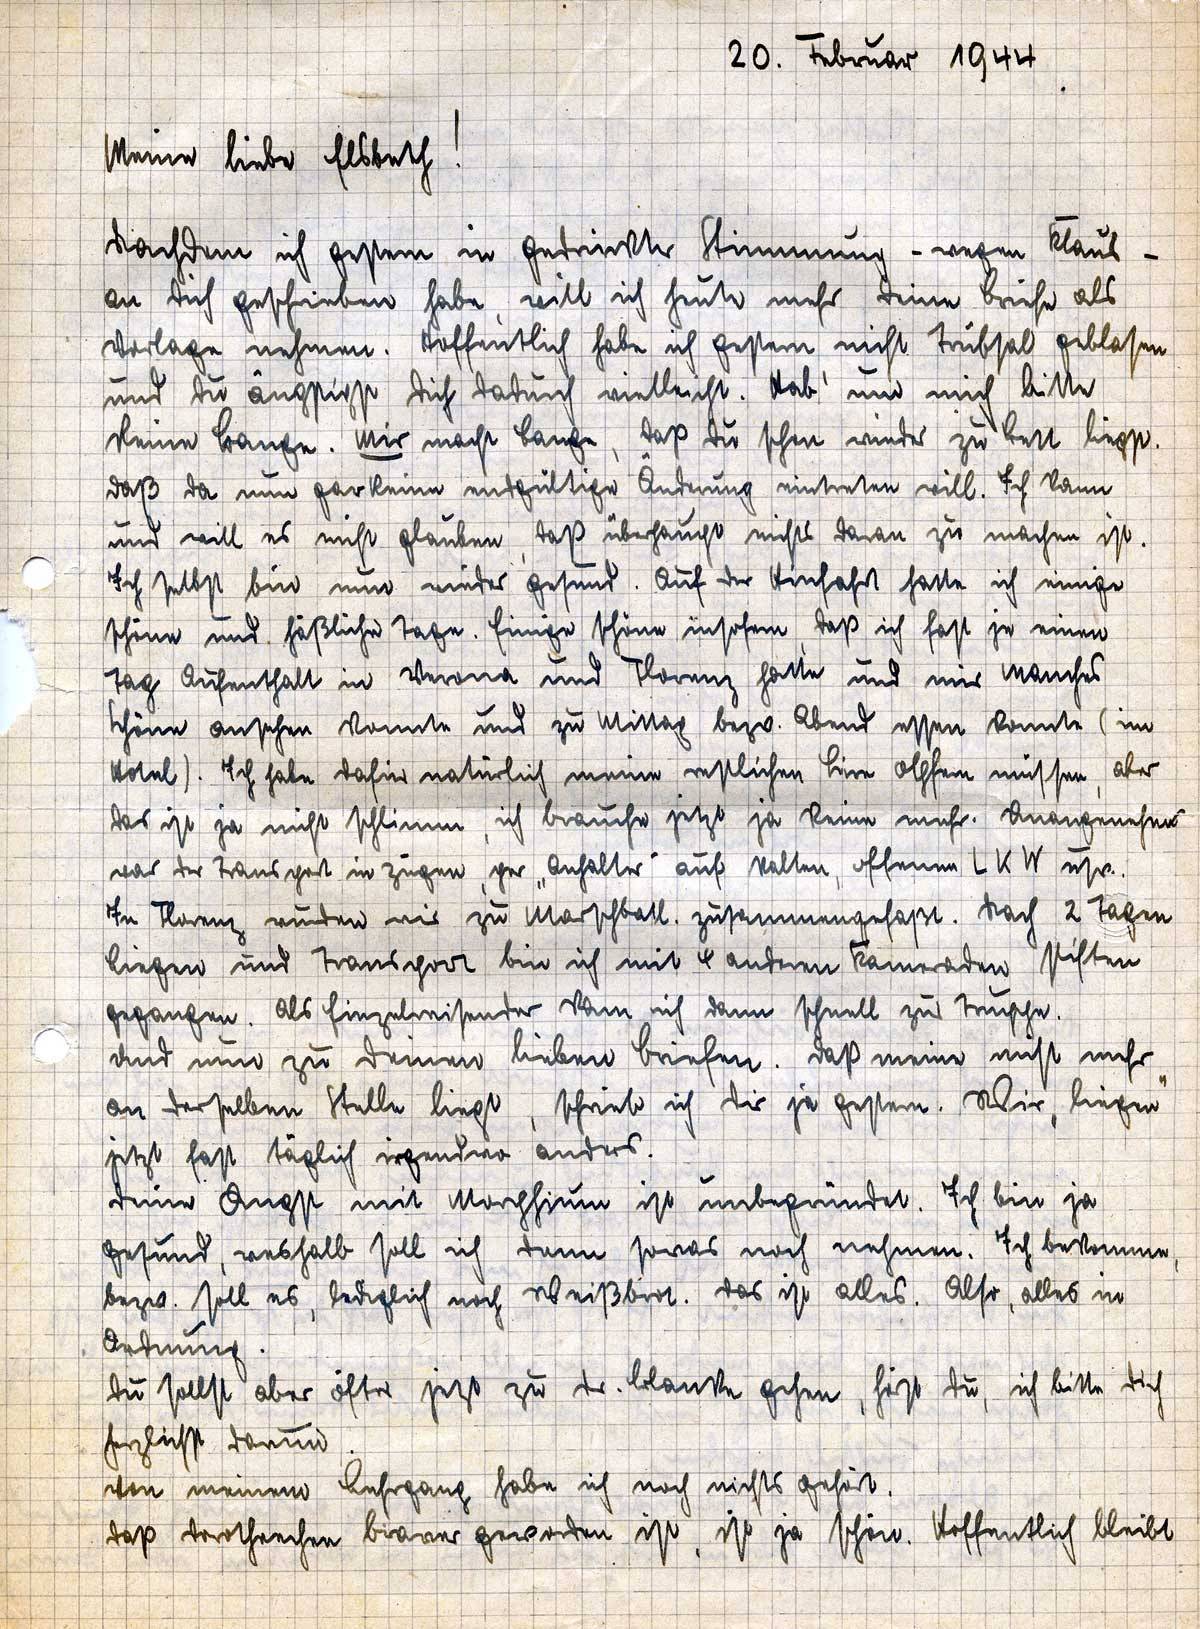 20. Februar 1944
Meine liebe Elsbeth!
Nachdem ich gestern in gedrückter Stimmung - wegen Klaus -
an Dich geschrieben habe, will ich heute mehr Deine Briefe als
Vorlage nehmen. Hoffentlich habe ich gestern nicht Trübsal geblasen
und Du ängstigst Dich dadurch vielleicht. Hab' um mich bitte
keine Bange. Mir macht bange, daß Du schon wieder zu Bett liegst.
daß da nun gar keine endgültige Änderung eintreten will. Ich kann
und will es nicht glauben, daß überhaupt nichts daran zu machen ist.
Ich selbst bin nun wieder gesund. Auf der Hinfahrt hatte ich einige
schöne und häßliche Tage. Einige schöne insofern, daß ich fast je einen
Tag Aufenthalt in Verona und Florenz hatte und mir manches
Schöne ansehen konnte und zu Mittag bezw. Abend essen konnte (im
Hotel). Ich habe dafür natürlich meine restlichen Lire opfern müssen, aber
das ist ja nicht schlimm, ich brauche jetzt ja keine mehr. Unangenehm
war der Transport in Zügen, per „Anhalter" auf kalten, offenen LKW usw..
In Florenz wurden wir zu Marschbatl. zusammengefaßt. Nach 2 Tagen
Liegen und Transport bin ich mit 4 anderen Kameraden stiften
gegangen. Als Einzelreisender kam ich dann schnell zur Truppe.
Und nun zu Deinen lieben Briefen. Daß meine nicht mehr
an derselben Stelle liegt, schrieb ich Dir ja gestern. Wir „liegen"
jetzt fast täglich irgendwo anders.
Deine Angst mit Morphium ist unbegründet. Ich bin ja
gesund, weshalb soll ich denn sowas noch nehmen. Ich bekomme,
bezw. soll es, lediglich noch Weißbrot. Das ist alles. Also, alles in
Ordnung.
Du sollst aber öfter jetzt zu Dr. Blanke gehen, hörst Du, ich bitte Dich
herzlichst darum.
Von meinem Lehrgang habe ich noch nichts gehört.
Daß Dorotheechen braver geworden ist, ist ja schön. Hoffentlich bleibt